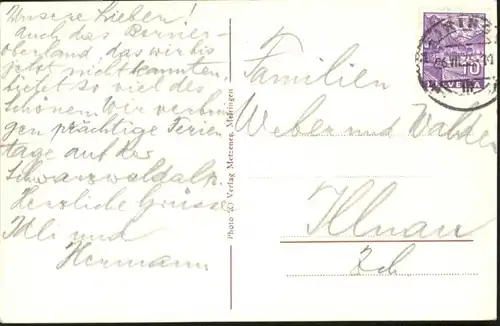 Unsere Lieben!
Auch das Berner-
oberland, das wir bis
jetzt nicht kannten,
bietet so viel des
Schönen. Wir verbrin-
gen prächtige Ferien-
tage auf der
Schwarzwaldalp.
Herzliche Grüsse
und
Hermann.
Photo & Verlag Metzener, Meiringen
Familien
Weber und Walder
Illnau
Zch.
10
HELVETIA